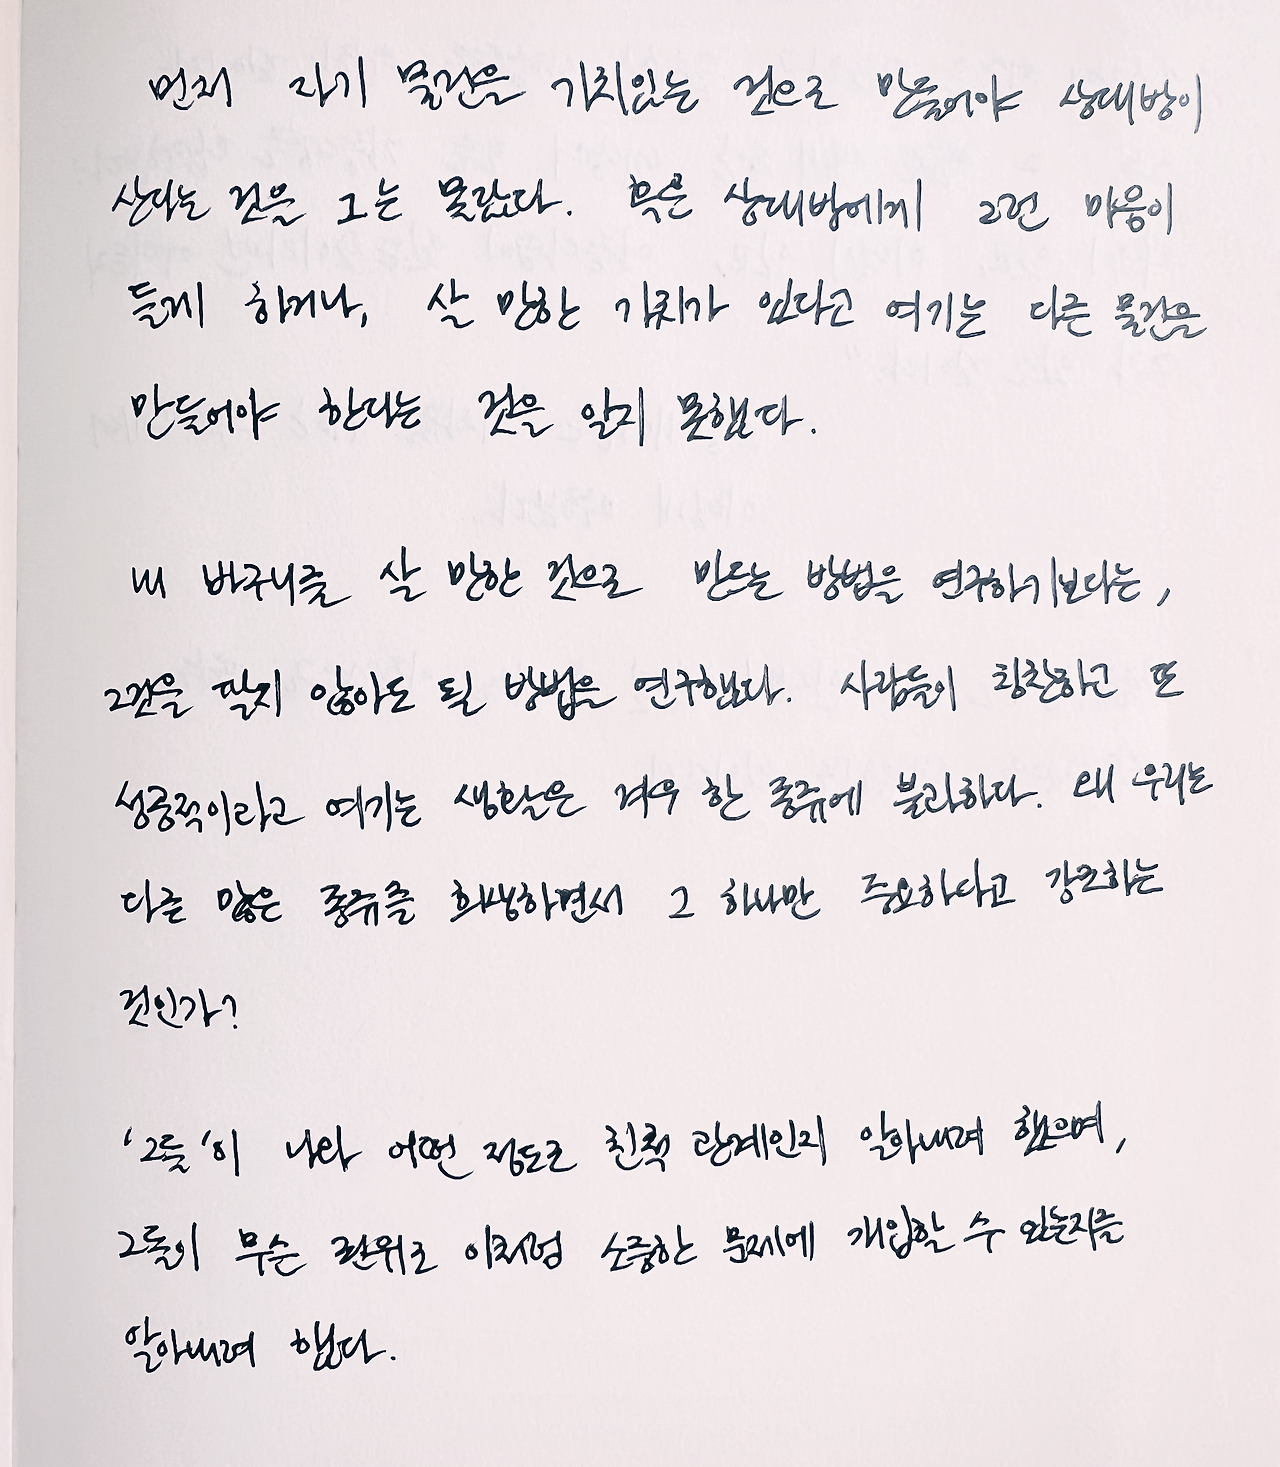 먼저 자기 물건을 가치있는 것으로 만들어야 상대방이
산다는 것을 그는 몰랐다. 혹은 상대방에게 그런 마음이
들게 하거나, 살 만한 가치가 있다고 여기는 다른 물건을
만들어야 한다는 것을 알지 못했다.
내 바구니를 살 만한 것으로 만드는 방법을 연구하기보다는,
그것을 팔지 않아도 될 방법을 연구했다. 사람들이 칭찬하고 또
성공적이라고 여기는 생활은 겨우 한 종류에 불과하다. 왜 우리는
다른 많은 종류를 희생하면서 그 하나만 중요하다고 강조하는
것인가?
'그들'이 나와 어떤 정도로 친척 관계인지 알아내려 했으며,
그들이 무슨 권위로 이처럼 소중한 문제에 개입할 수 있는지를
알아내려 했다.